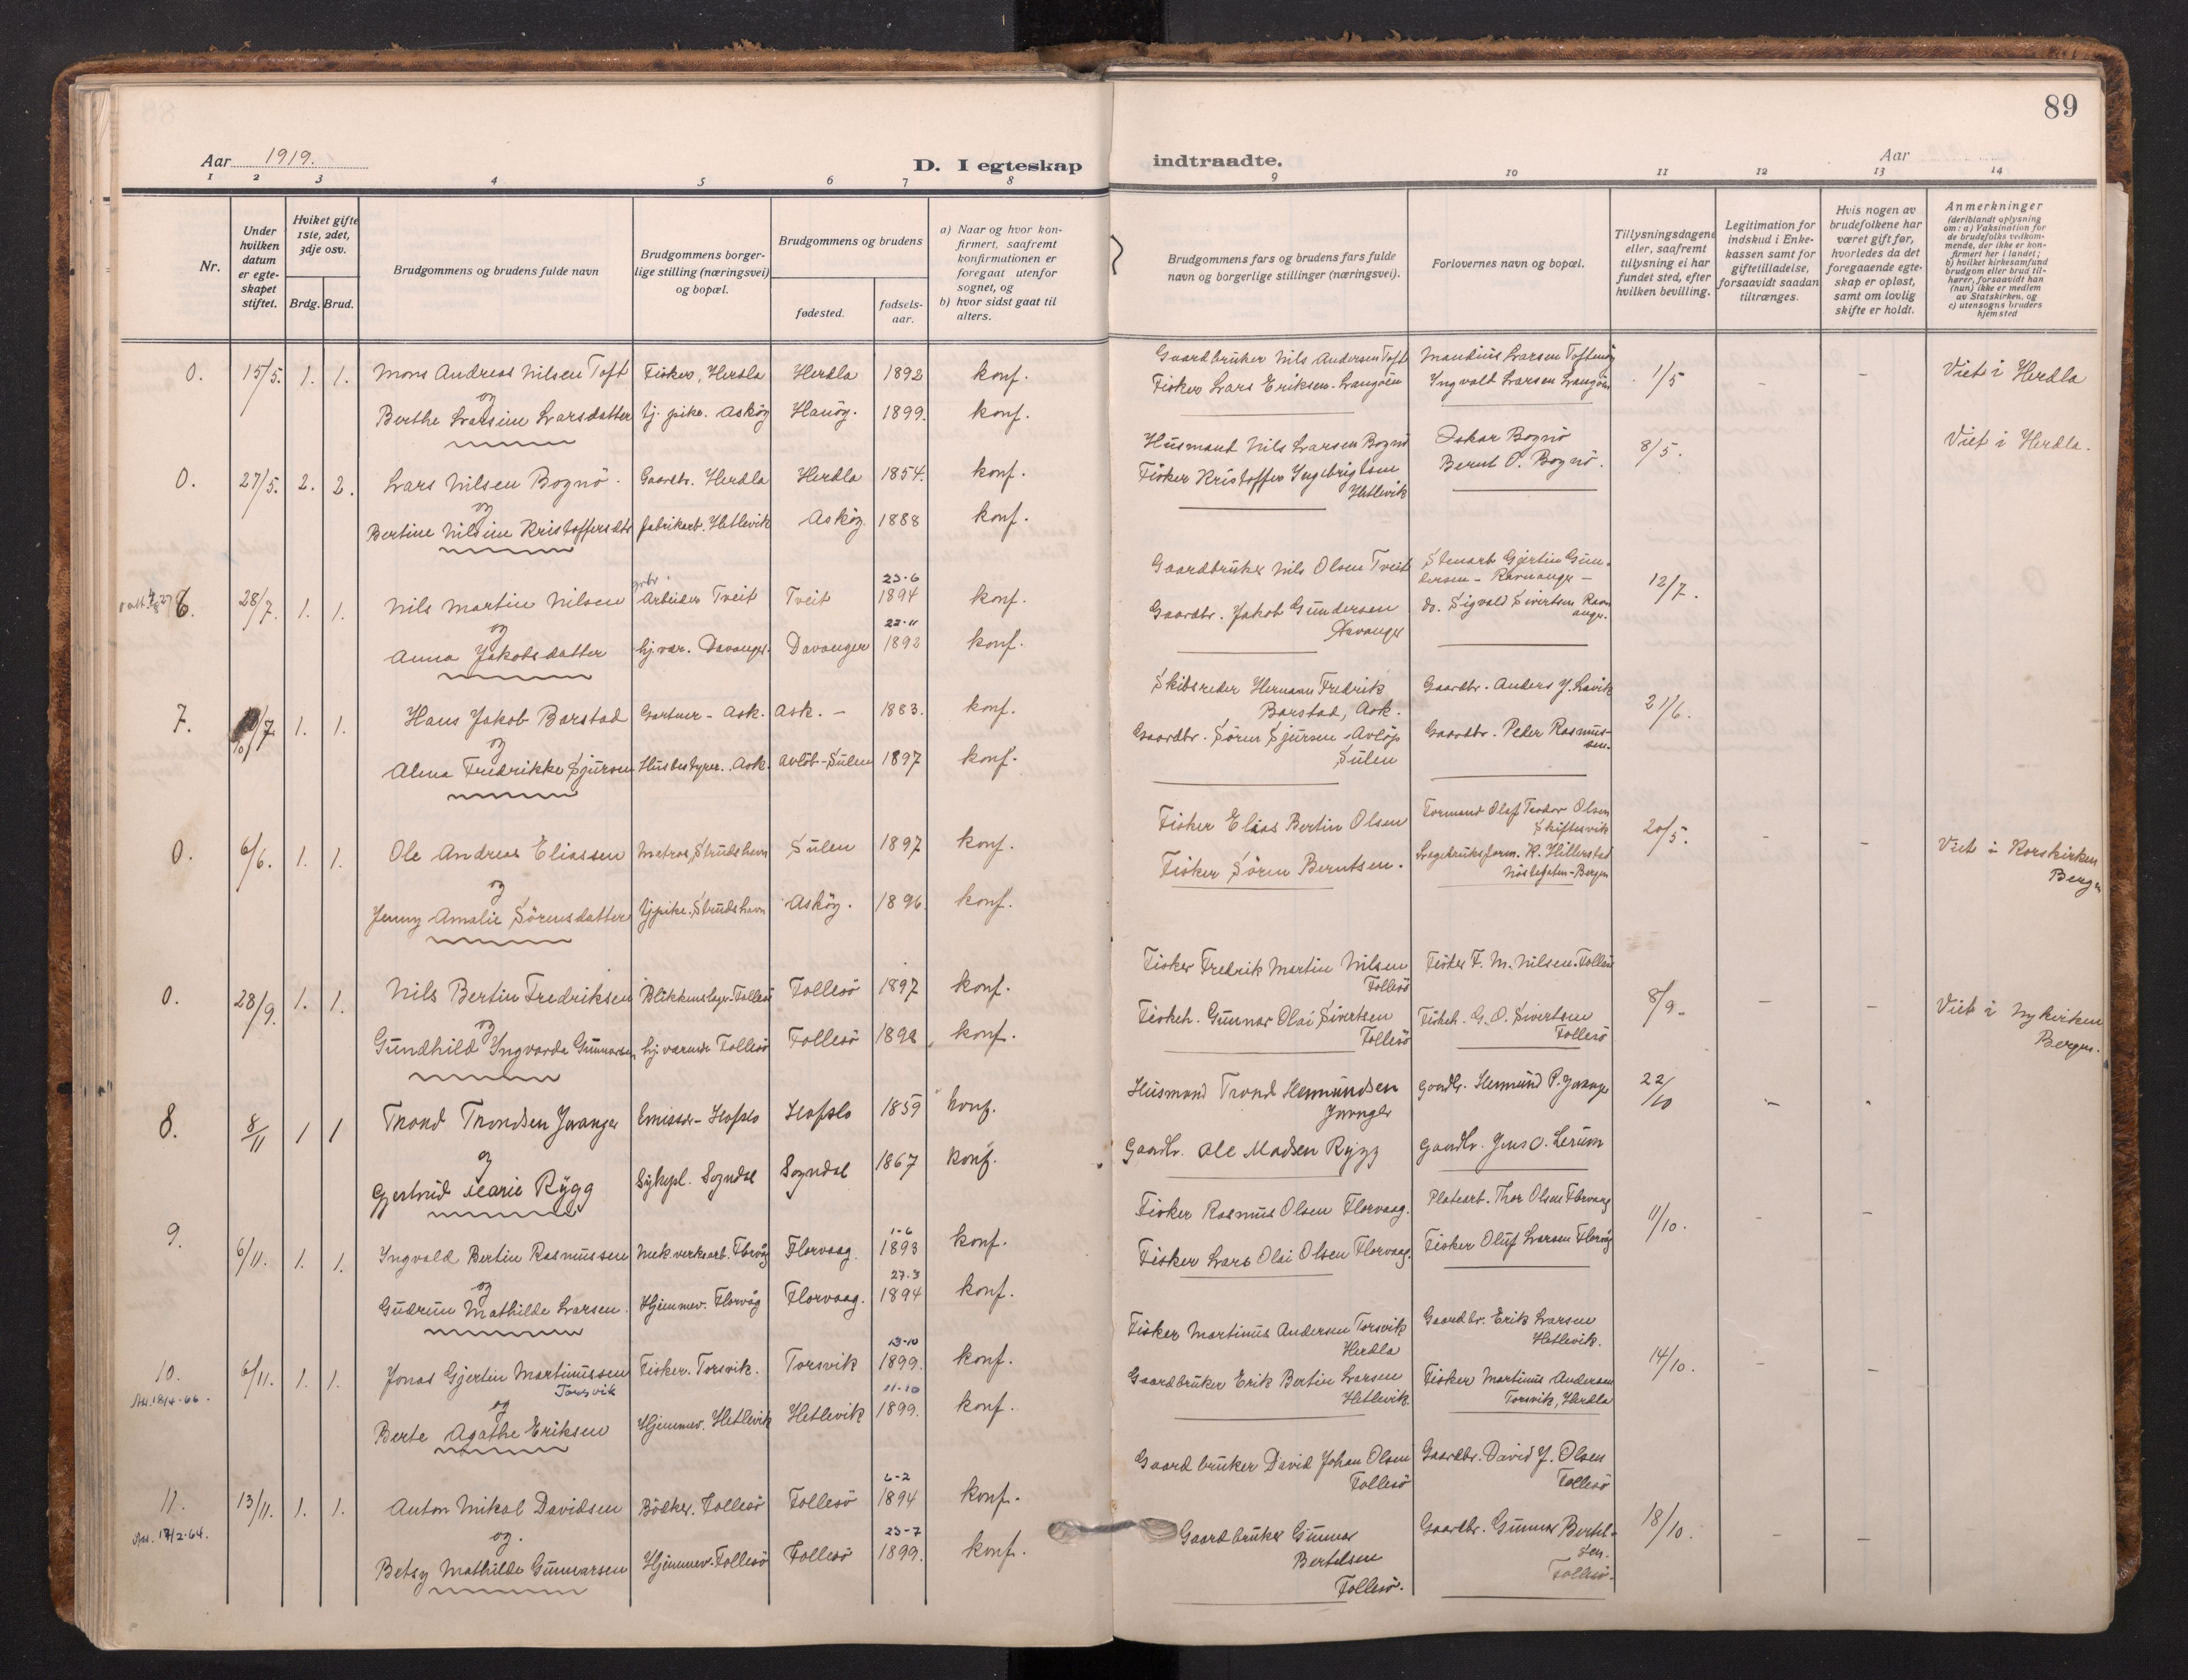 89
Aar 1919.
D. I egteskap indtraadte.
Aar
1 2 3 4 5 6 7 8 9 10 11 12 13 14
Nr.
Under hvilken datum er egteskapet stiftet.
Hviket gifte 1ste, 2det, 3dje osv.
Brdg. Brud.
Brudgommens og brudens fulde navn
Brudgommens borgerlige stilling (næringsvei) og bopæl.
Brudgommens og brudens
fødested.
fødselsaar.
a) Naar og hvor konfirmert, saafremt konfirmationen er foregaat utenfor sognet, og
b) hvor sidst gaat til alters.
Brudgommens fars og brudens fars fulde navn og borgerlige stillinger (næringsvei).
Forlovernes navn og bopæl.
Tillysningsdagene eller, saafremt tillysning ei har fundet sted, efter hvilken bevilling.
Legitimation for indskud i Enkekassen samt for giftetilladelse, forsaavidt saadan tiltrænges.
Hvis nogen av brudefolkene har været gift før, hvorledes da det foregaaende egteskap er opløst, samt om lovlig skifte er holdt.
Anmerkninger
(deriblandt oplysning om: a) Vaksination for de brudefolks vedkommende, der ikke er konfirmert her i landet;
b) hvilket kirkesamfund brudgom eller brud tilhører, forsaavidt han (hun) ikke er medlem av Statskirken, og
c) utensogns bruders hjemsted
0. 15/5. 1. 1. Mons Andreas Nilsen Toft Fisker, Herdla Herdla 1892 konf. Gaardbruker Nils Andersen Toft Mandius Larsen Toftenøy 1/5 – – Viet i Herdla
og
Berthe Larsine Larsdatter tj. pike. Askøy Hanøy. 1899. konf. Fisker Lars Eriksen Langöen Ingvald Larsen Langöen
0. 27/5. 2. 2. Lars Nilsen Bognö. Gaardbr. Herdla Herdla 1854. konf. Husmand Nils Larsen Bognö Oskar Bognö 8/5. Viet i Herdla.
og
Bertine Nilsine Kristoffersdtr fabrikarb. Hetlevik Askøy 1888 konf. Fisker Kristoffer Ingebrigtsen Hetlevik Bernt O. Bognö.
6. 28/7. 1. 1. Nils Martin Nilsen grbr. Arbeider Tveit Tveit 23-6 1894 konf. Gaardbruker Nils Olsen Tveit Stenarb Gjertin Gundersen - Ravnanger - 12/7.
og
Anna Jakobsdatter hj. vær. Davanger. Davanger 22-11 1892 konf. Gaardbr. Jakob Gundersen Davanger do. Sigvald Sivertsen Ravnanger.
7. 10/7. 1. 1. Hans Jakob Barstad Gartner - Ask. Ask. – 1883. konf. Skibsreder Herman Fredrik Barstad, Ask. Gaardbr. Anders J. Lavik 21/6.
og
Alma Fredrikke Sjursen Husbestyrer. Ask. Avløb-Sulen 1897 konf. Gaardbr. Sören Sjursen Avløp Sulen Gaardbr. Peder Rasmussen.
0. 6/6. 1. 1. Ole Andreas Eliassen Matros, Strudshavn Sulen 1897 konf. Fisker Elias Bertin Olsen Formand Olaf Teodor Olsen Skiftesvik 20/5. – – Viet i Korskirken Bergen
og
Jenny Amalie Sörensdatter tj. pike. Strudshavn Askøy. 1896. konf. Fisker Sören Berntsen. Sagbruksform. K. Hillerstad Nöstegaten-Bergen
0. 28/9. 1. 1. Nils Bertin Fredriksen Blikkenslager. Follesö Follesö 1897 konf. Fisker Fredrik Martin Nilsen Follesö Fisker F. M. Nilsen. Follesö 8/9. – – Viet i Nykirken Bergen.
og
Gundhild Ingvarda Gunnarsen hj. værende Follesö Follesö 1898 konf. Fiskeh. Gunnar Olai Sivertsen Follesö Fiskeh. G. O. Sivertsen Follesö
8. 8/11 1 1 Trond Trondsen Jvanger Emissær - Hafslo Hafslo 1859 konf. Husmand Trond Hermundsen Jvanger Gaardbr. Hermund P. Jvanger 22/10 –
og
Gjertrud Marie Rygg Sykepl. Sogndal Sogndal 1867 konf. Gaardbr. Ole Madsen Rygg Gaardbr. Jens O. Lerum
9. 6/11. 1. 1. Ingvald Bertin Rasmussen Mek. verksarb. Florvåg Florvaag. 1-6 1893 konf. Fisker Rasmus Olsen Florvaag. Platearb. Thor Olsen Florvaag 11/10. – –
og
Gudrun Mathilde Larsen. Hjemmev. Florvåg Florvaag. 27-3 1894 konf. Fisker Lars Olai Olsen Florvaag. Fisker Oluf Larsen Florvåg
10. 6/11. 1. 1. Jonas Gjertin Martinussen Torsvik Fisker. Torsvik. Torsvik 13-10 1899. konf. Fisker Martinus Andersen Torsvik Herdla Gaardbr. Erik Larsen Hetlevik. 14/10. – –
Att. 18/4-66.
og
Berte Agathe Eriksen Hjemmev. Hetlevik Hetlevik 11-10 1899. konf. Gaardbruker Erik Bertin Larsen Hetlevik. Fisker Martinus Andersen Torsvik, Herdla
11. 13/11. 1. 1. Anton Mikal Davidsen Bödker. Follesö Follesö 6-2 1894 konf. Gaardbruker David Johan Olsen Follesö Gaardbr. David J. Olsen Follesö 18/10. – –
Att. 17/2-64.
og.
Betsy Mathilde Gunnarsen Hjemmev. Follesö Follesö 23-7 1899. konf. Gaardbruker Gunnar Bertelsen Follesö. Gaardbr. Gunnar Bertelsen. Follesö.